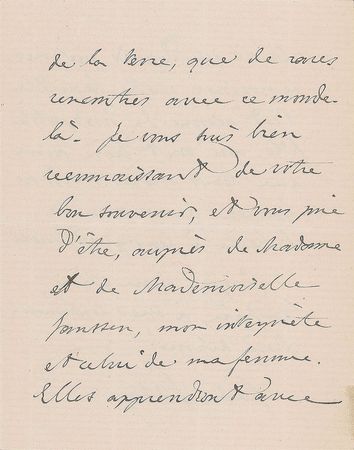 de la terre, que de rares
rencontres avec ce monde-
là. Je vous suis bien
reconnaissant de votre
bon souvenir, et vous prie
d'être, auprès de Madame
et de Mademoiselle
Janssen, mon interprète
et celui de ma femme.
Elles apprendront avec